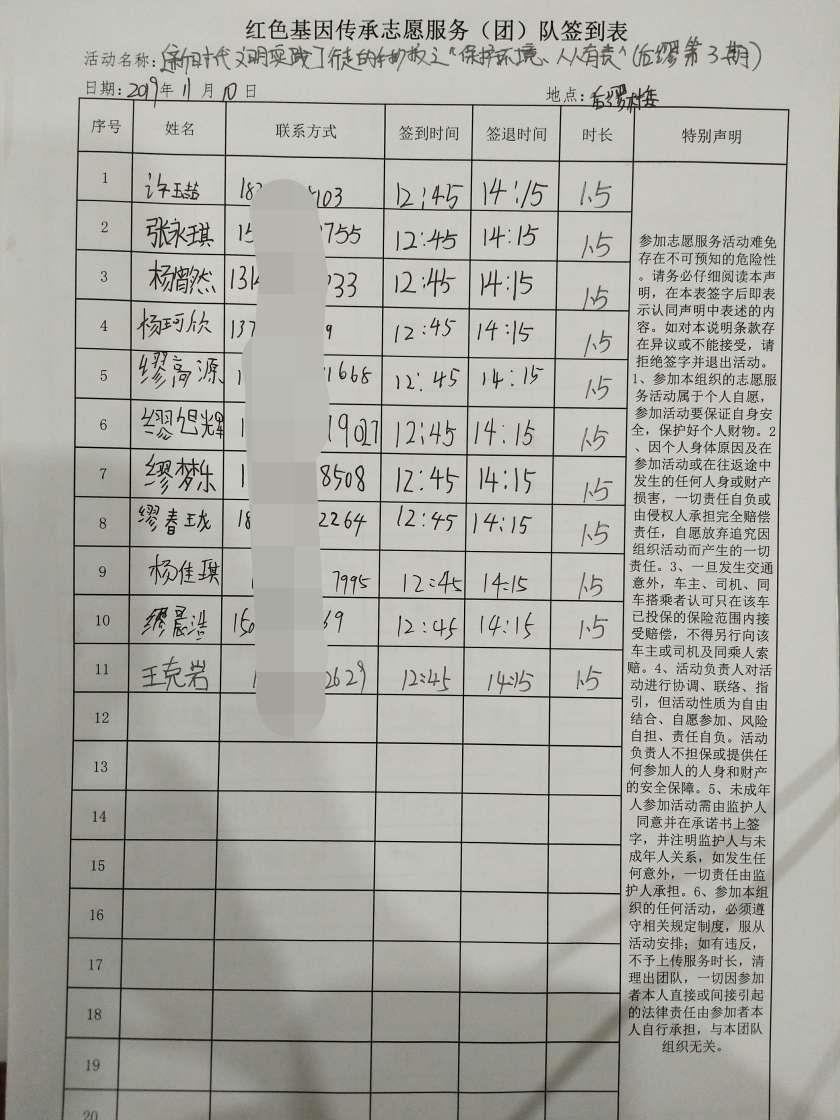 红色基因传承志愿服务（团）队签到表
活动名称：新时代文明实践 "保护环境、人人有责"（后缪第3期）
日期：2019年11月10日 地点：后缪村委
序号 姓名 联系方式 签到时间 签退时间 时长 特别声明
1 许玉喆 18 103 12:45 14:15 1.5
2 张永琪 15 755 12:45 14:15 1.5
3 杨 然 131 033 12:45 14:15 1.5
4 杨珂欣 137 9 12:45 14:15 1.5
5 缪高源 1 1668 12:45 14:15 1.5
6 缪旭辉 1 19027 12:45 14:15 1.5
7 缪梦乐 1 8508 12:45 14:15 1.5
8 缪春珑 18 2264 12:45 14:15 1.5
9 杨佳琪 7995 12:45 14:15 1.5
10 缪晨浩 150 69 12:45 14:15 1.5
11 王克岩 1 2629 12:45 14:15 1.5
12
13
14
15
16
17
18
19
20
参加志愿服务活动难免
存在不可预知的危险性
。请务必仔细阅读本声
明，在本表签字后即表
示认同声明中表述的内
容。如对本说明条款存
在异议或不能接受，请
拒绝签字并退出活动。
1、参加本组织的志愿服
务活动属于个人自愿，
参加活动要保证自身安
全，保护好个人财物。2
、因个人身体原因及在
参加活动或在往返途中
发生的任何人身或财产
损害，一切责任自负或
由侵权人承担完全赔偿
责任，自愿放弃追究因
组织活动而产生的一切
责任。3、一旦发生交通
意外，车主、司机、同
车搭乘者认可只在该车
已投保的保险范围内接
受赔偿，不得另行向该
车主或司机及同乘人索
赔。4、活动负责人对活
动进行协调、联络、指
引，但活动性质为自由
结合、自愿参加、风险
自担、责任自负。活动
负责人不担保或提供任
何参加人的人身和财产
的安全保障。5、未成年
人参加活动需由监护人
同意并在承诺书上签
字，并注明监护人与未
成年人关系，如发生任
何意外，一切责任由监
护人承担。6、参加本组
织的任何活动，必须遵
守相关规定制度，服从
活动安排；如有违反，
不予上传服务时长，清
理出团队，一切因参加
者本人直接或间接引起
的法律责任由参加者本
人自行承担，与本团队
组织无关。